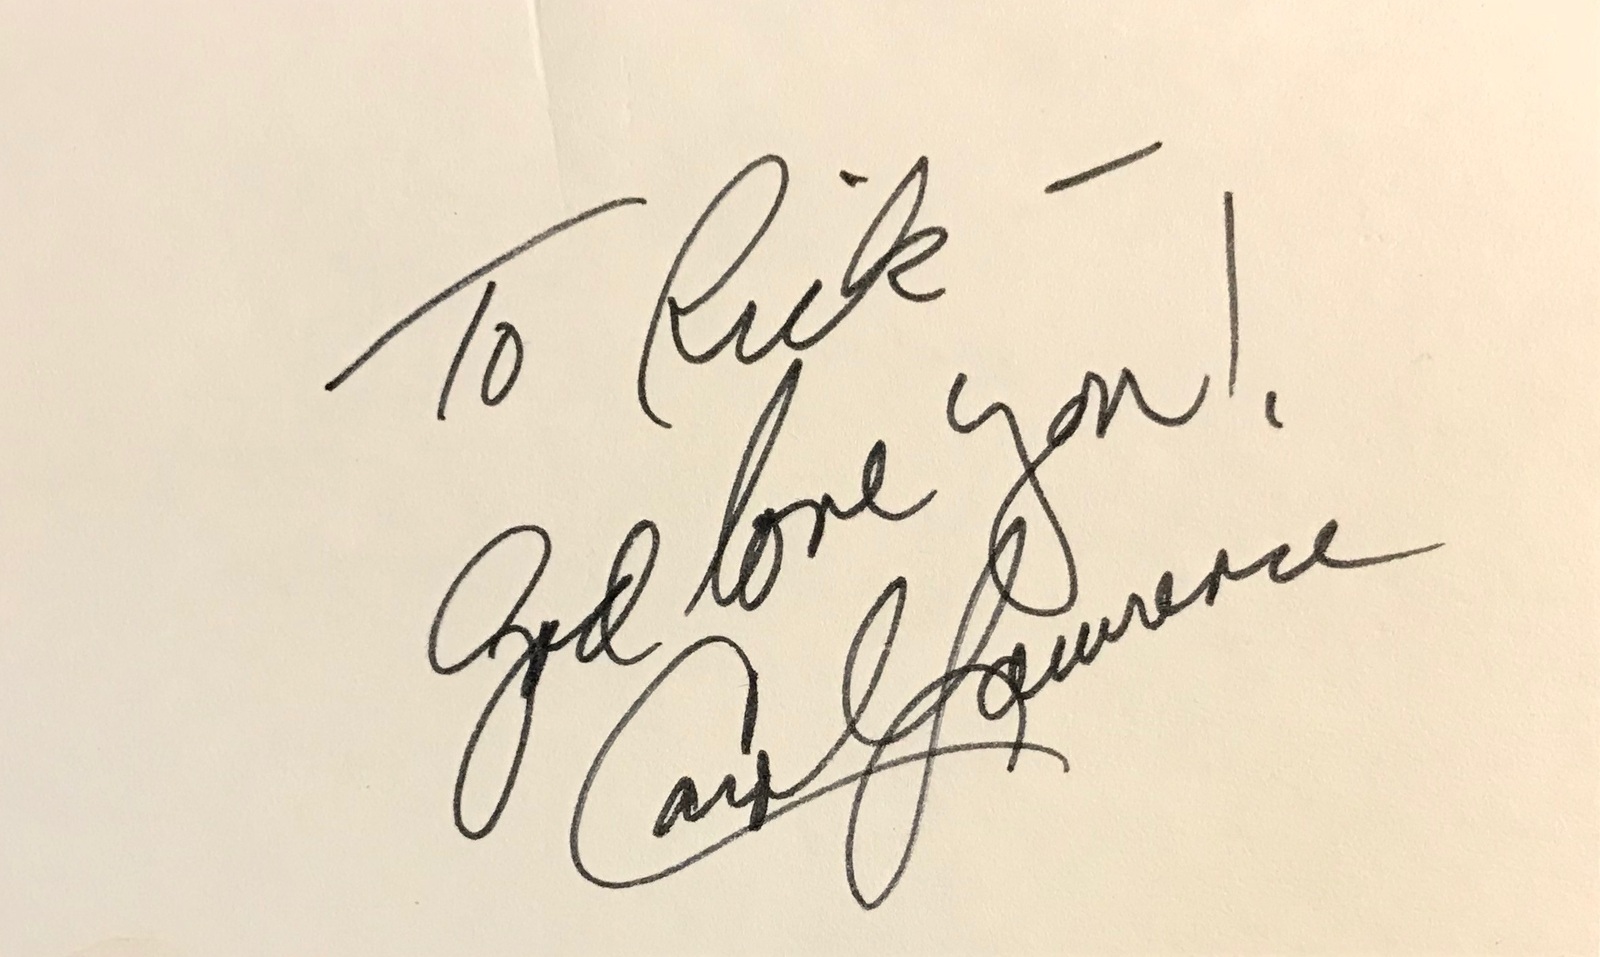 To Rick —
God love you!
Carol Lawrence